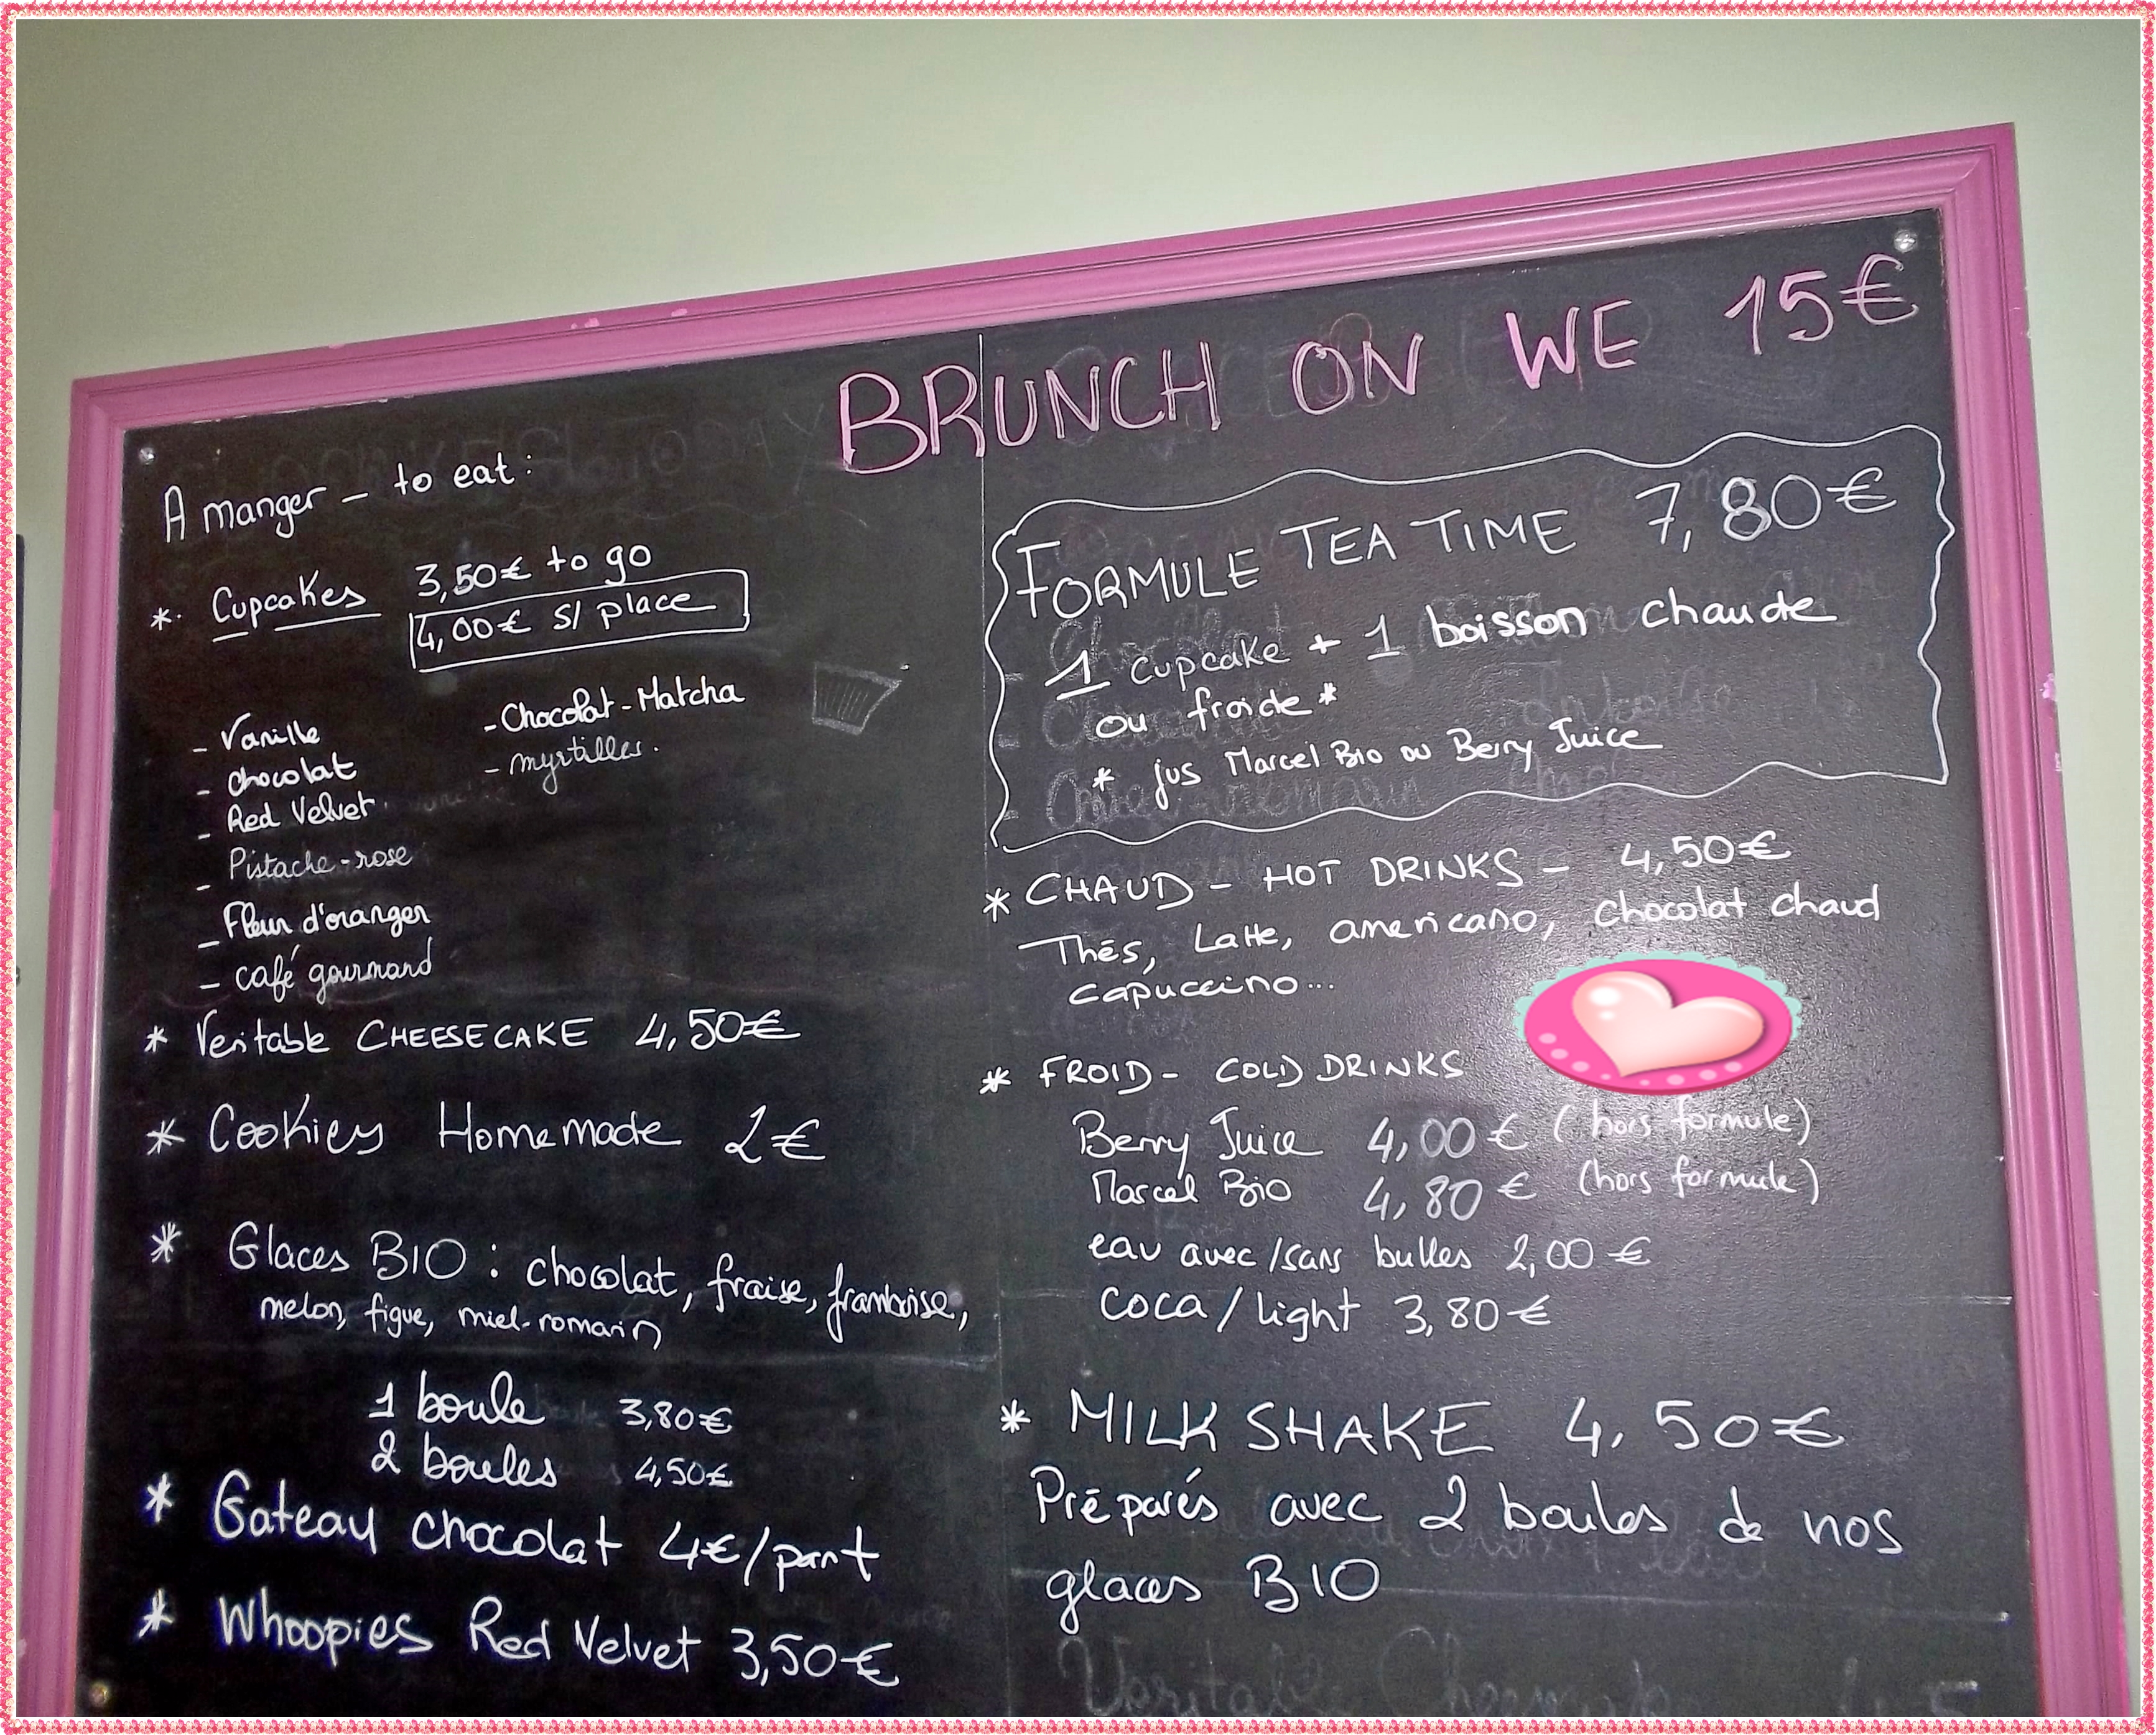 BRUNCH ON WE 15€
A manger - to eat :
* Cupcakes 3,50€ to go
4,00€ s/ place
- Vanille
- chocolat
- Red Velvet
- Pistache-rose
- Fleur d'oranger
- café gourmand
- Chocolat-Matcha
- myrtilles.
* Veritable CHEESECAKE 4,50€
* Cookies Homemade 2€
* Glaces BIO : chocolat, fraise, framboise,
melon, figue, miel-romarin
1 boule 3,80€
2 boules 4,50€
* Gateau chocolat 4€/part
* Whoopies Red Velvet 3,50€
FORMULE TEA TIME 7,80€
1 cupcake + 1 boisson chaude
ou froide*
* jus Marcel Bio ou Berry Juice
* CHAUD - HOT DRINKS - 4,50€
Thés, Latte, americano, chocolat chaud
capuccino...
* FROID - COLD DRINKS
Berry Juice 4,00€ (hors formule)
Marcel Bio 4,80€ (hors formule)
eau avec/sans bulles 2,00€
coca/light 3,80€
* MILK SHAKE 4,50€
Préparés avec 2 boules de nos
glaces BIO